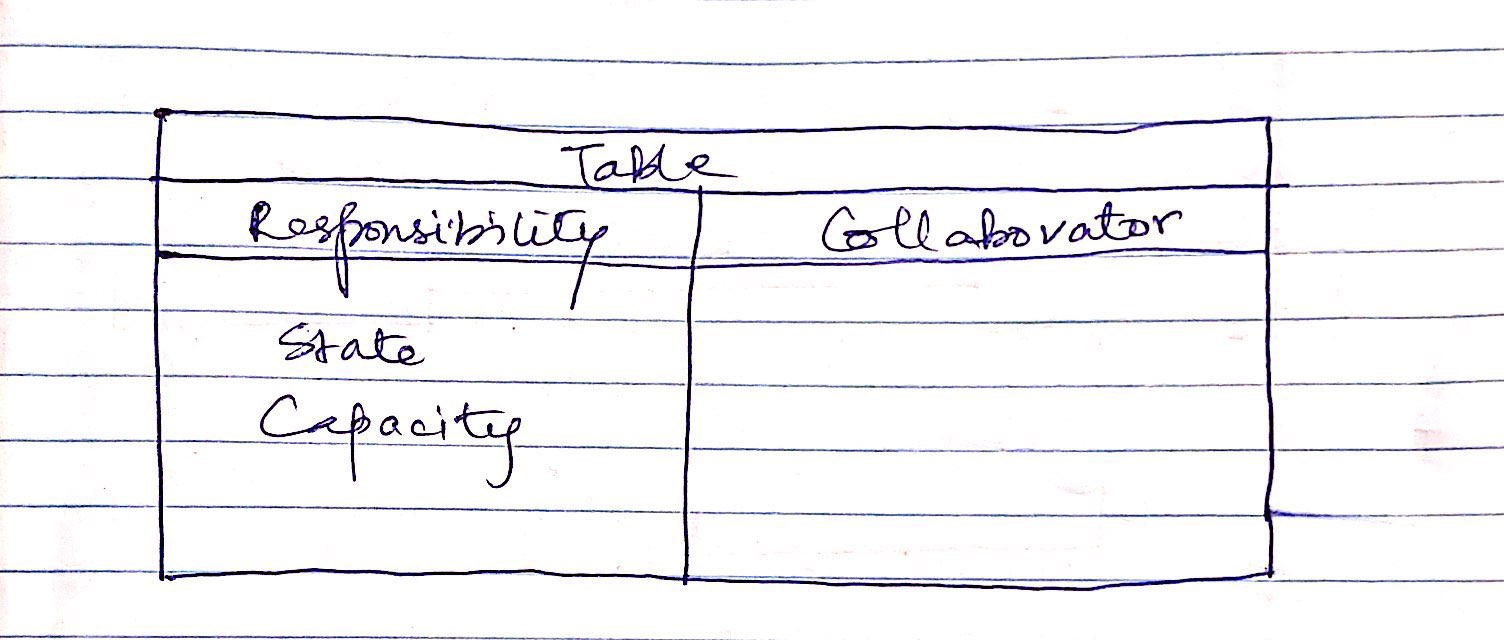 Table
Responsibility Collaborator
State
Capacity